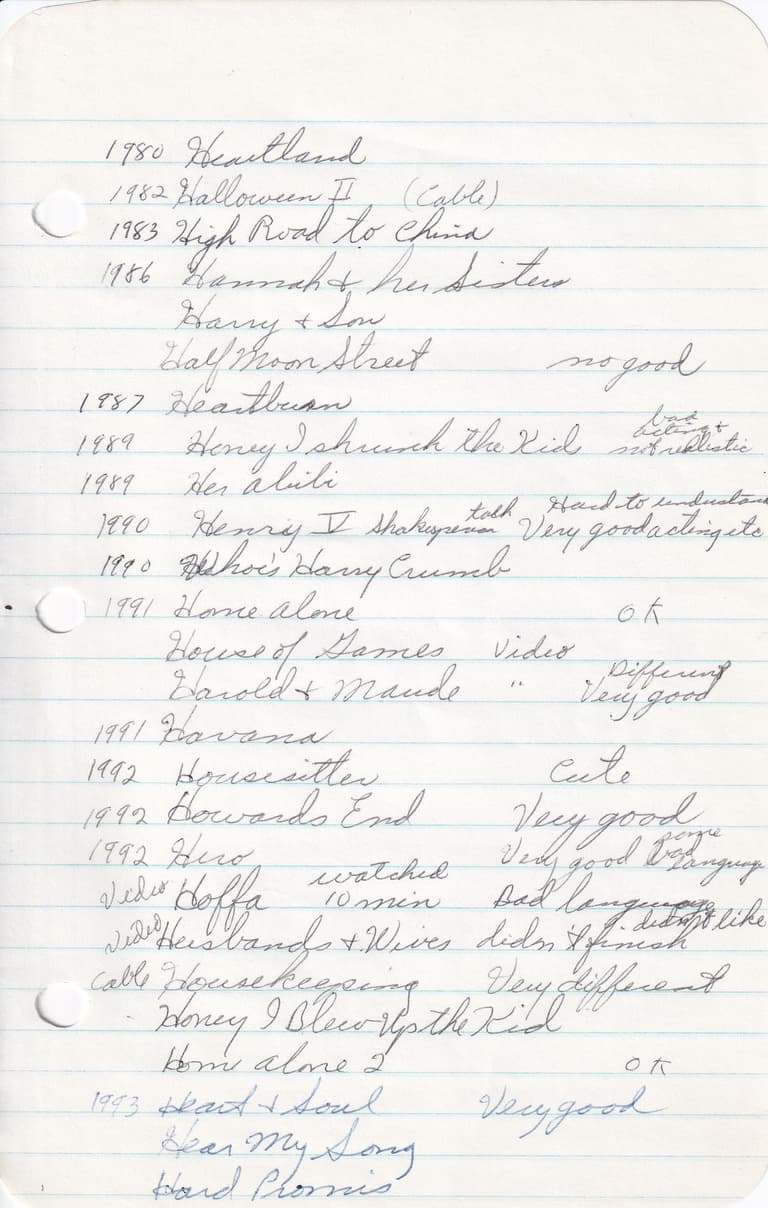 1980 Heartland
1982 Halloween II (Cable)
1983 High Road to China
1986 Hannah & her Sisters
Harry + Son
Half Moon Street no good
1987 Heartburn
1989 Honey I shrunk the Kid bad acting + not realistic
1989 Her alibi
1990 Henry V Shakespeare talk Hard to understand Very good acting etc
1990 Who's Harry Crumb
1991 Home alone OK
House of Games Video
Harold + Maude " Different Very good
1991 Havana
1992 Housesitter Cute
1992 Howards End Very good
1992 Hero Very good some bad language
Video Hoffa watched 10 min Bad language
Video Husbands + Wives didn't finish didn't like
Cable Housekeeping Very different
Honey I Blew Up the Kid
Home alone 2 OK
1993 Heart + Soul Very good
Hear My Song
Hard Promis